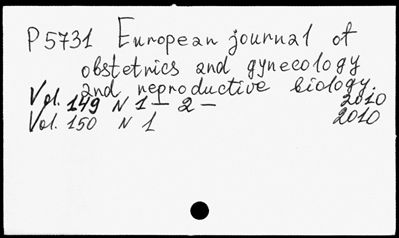 P5731 European journal of
obstetrics and gynecology
and reproductive biology.
Vol. 149 N 1 — 2 — 2010
Vol. 150 N 1 2010